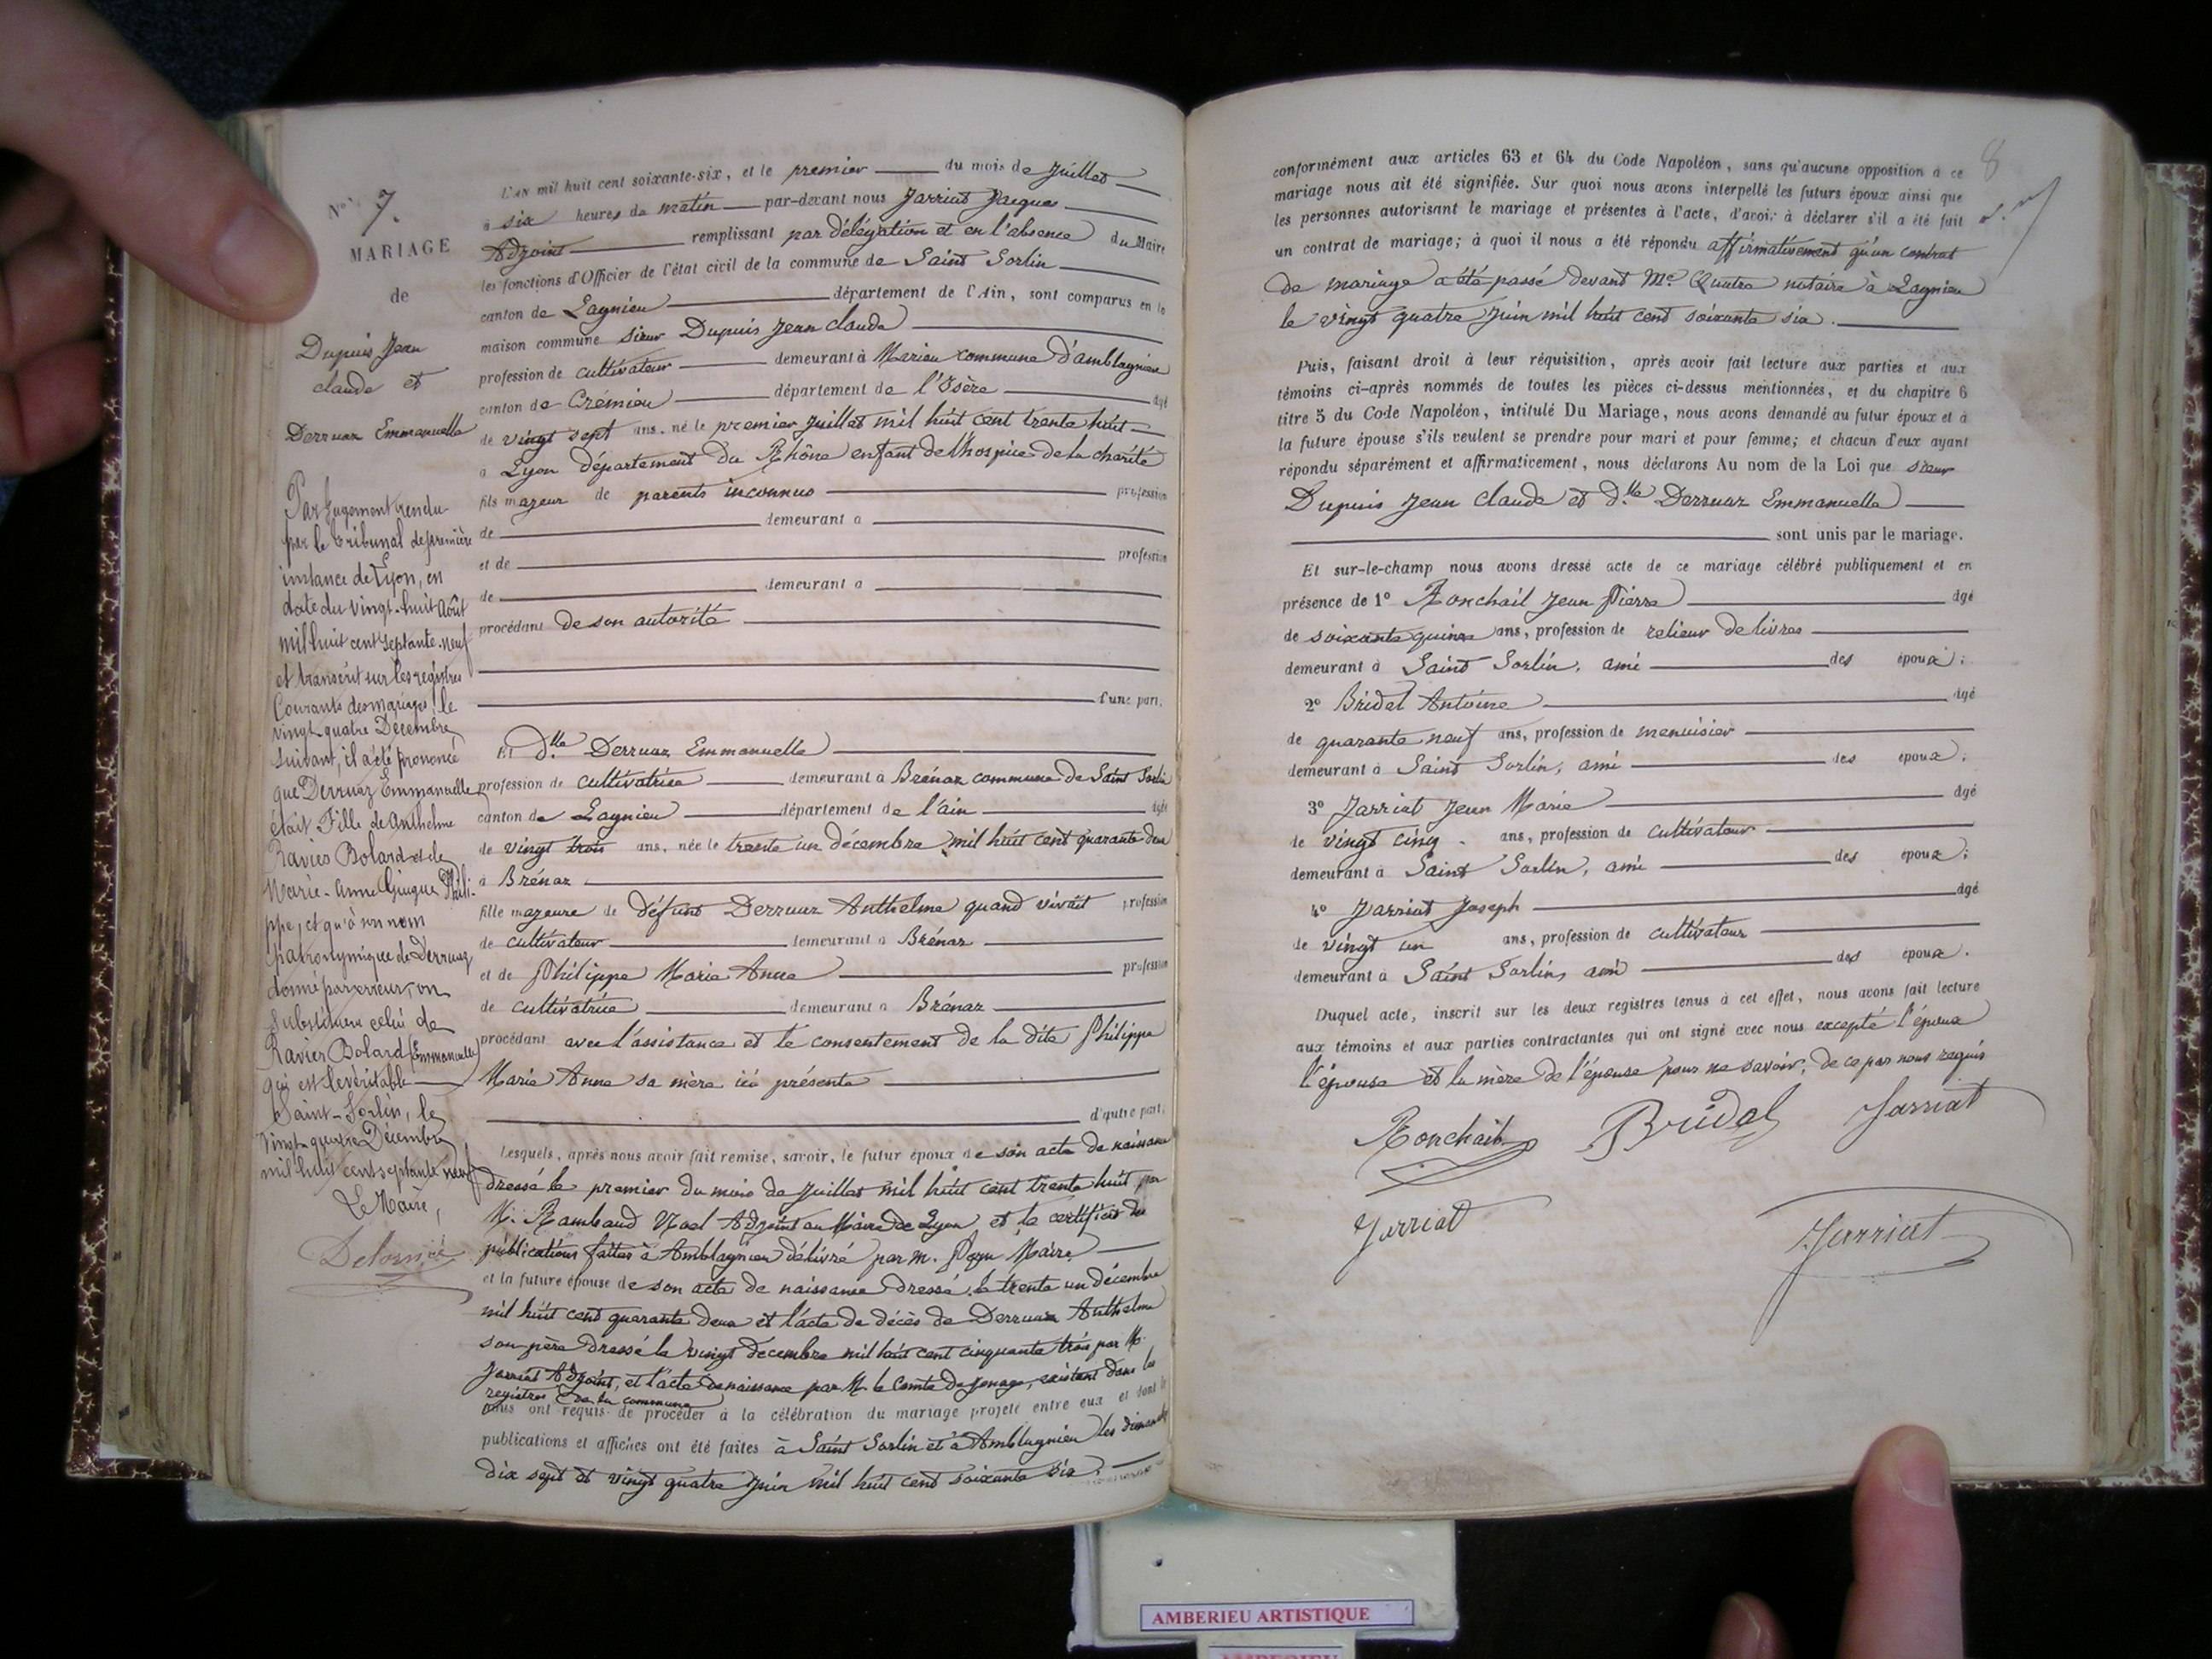 N° 7.
MARIAGE
de
Dupuis Jean
claude et
Derruaz Emmanuelle
Par Jugement rendu
par le tribunal de première
instance de Lyon, en
date du vingt-huit Août
mil huit cent septante-neuf
et transcrit sur les registres
Courants des mariages, le
vingt-quatre Décembre
suivant, il a été prononcé
que Derruaz Emmanuelle
était Fille de Anthelme
Ravier Bolard et de
Marie-Anne Philip-
ppe, et qu'à un nom
patronymique de Derruaz
donné par erreur, on
substituera celui de
Ravier Bolard (Emmanuelle)
qui est le véritable
Saint-Sorlin, le
vingt-quatre Décembre
mil huit cent septante neuf
Le Maire,
L'AN mil huit cent soixante-six, et le premier du mois de Juillet
à six heures de matin par-devant nous Jarriat Jacques
Adjoint remplissant par délégation et en l'absence du Maire
les fonctions d'Officier de l'état civil de la commune de Saint Sorlin
canton de Lagnieu département de l'Ain, sont comparus en la
maison commune sieur Dupuis Jean claude
profession de cultivateur demeurant à Marieu commune d'amblagnieu
canton de Crémieu département de l'Isère âgé
de vingt sept ans, né le premier Juillet mil huit cent trente huit
à Lyon département du Rhône enfant de l'hospice de la charité
fils majeur de parents inconnus profession
de demeurant à
et de profession
de demeurant à
procédant de son autorité
d'une part,
Et dlle Derruaz Emmanuelle
profession de cultivatrice demeurant à Brénaz commune de Saint Sorlin
canton de Lagnieu département de l'ain âgée
de vingt trois ans, née le trente un décembre mil huit cent quarante deux
à Brénaz
fille majeure de défunt Derruaz Anthelme quand vivait profession
de cultivateur demeurant à Brénaz
et de Philippe Marie Anne profession
de cultivatrice demeurant à Brénaz
procédant avec l'assistance et le consentement de la dite Philippe
Marie Anne sa mère ici présente
d'autre part;
Lesquels, après nous avoir fait remise, savoir, le futur époux de son acte de naissance
dressé le premier du mois de Juillet mil huit cent trente huit par
M. Rambaud Noel Adjoint au Maire de Lyon et le certificat de
publications faites à Amblagnieu délivré par m. Maire
et la future épouse de son acte de naissance dressé le trente un décembre
mil huit cent quarante deux et l'acte de décès de Derruaz Anthelme
son père dressé le vingt décembre mil huit cent cinquante trois par M.
Jarriat Adjoint, et l'acte de naissance par M. le Comte de Jonage, existant dans les
registres de la commune
nous ont requis de procéder à la célébration du mariage projeté entre eux et dont les
publications et affiches ont été faites à Saint Sorlin et à Amblagnieu les dimanches
dix sept et vingt quatre Juin mil huit cent soixante six.
8
conformément aux articles 63 et 64 du Code Napoléon, sans qu'aucune opposition à ce
mariage nous ait été signifiée. Sur quoi nous avons interpellé les futurs époux ainsi que
les personnes autorisant le mariage et présentes à l'acte, d'avoir à déclarer s'il a été fait
un contrat de mariage; à quoi il nous a été répondu affirmativement qu'un contrat
de mariage a été passé devant Me. Quatre notaire à Lagnieu
le vingt quatre Juin mil huit cent soixante six.
Puis, faisant droit à leur réquisition, après avoir fait lecture aux parties et aux
témoins ci-après nommés de toutes les pièces ci-dessus mentionnées, et du chapitre 6
titre 5 du Code Napoléon, intitulé Du Mariage, nous avons demandé au futur époux et à
la future épouse s'ils veulent se prendre pour mari et pour femme; et chacun d'eux ayant
répondu séparément et affirmativement, nous déclarons Au nom de la Loi que sieur
Dupuis Jean Claude et dlle Derruaz Emmanuelle
sont unis par le mariage.
Et sur-le-champ nous avons dressé acte de ce mariage célébré publiquement et en
présence de 1° Ronchail Jean Pierre âgé
de soixante quinze ans, profession de relieur de livres
demeurant à Saint Sorlin, ami des époux;
2° Bridel Antoine âgé
de quarante neuf ans, profession de menuisier
demeurant à Saint Sorlin, ami des époux;
3° Jarriat Jean Marie âgé
de vingt cinq ans, profession de cultivateur
demeurant à Saint Sorlin, ami des époux;
4° Jarriat Joseph âgé
de vingt un ans, profession de cultivateur
demeurant à Saint Sorlin, ami des époux.
Duquel acte, inscrit sur les deux registres tenus à cet effet, nous avons fait lecture
aux témoins et aux parties contractantes qui ont signé avec nous excepté l'époux
l'épouse et la mère de l'épouse pour ne savoir, de ce par nous requis
Ronchail Bridel Jarriat
Jarriat Jarriat
AMBERIEU ARTISTIQUE
AMBERIEU